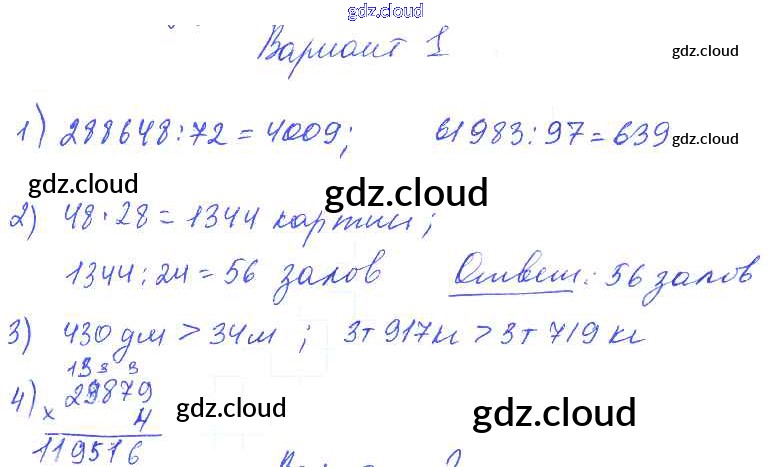 gdz.cloud
Вариант 1
gdz.cloud
1) 288648:72=4009; 61983:97=639
gdz.cloud
gdz.cloud
gdz.cloud
2) 48·28=1344 картин;
1344:24=56 залов Ответ: 56 залов
3) 430дм>34м; 3т917кг>3т719кг
13 3 3
4) × 29879
4
119516
gdz.cloud
gdz.cloud